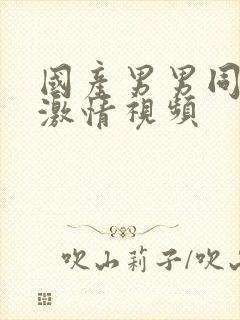 國產男男同
激情視頻
吹山莉子/吹山